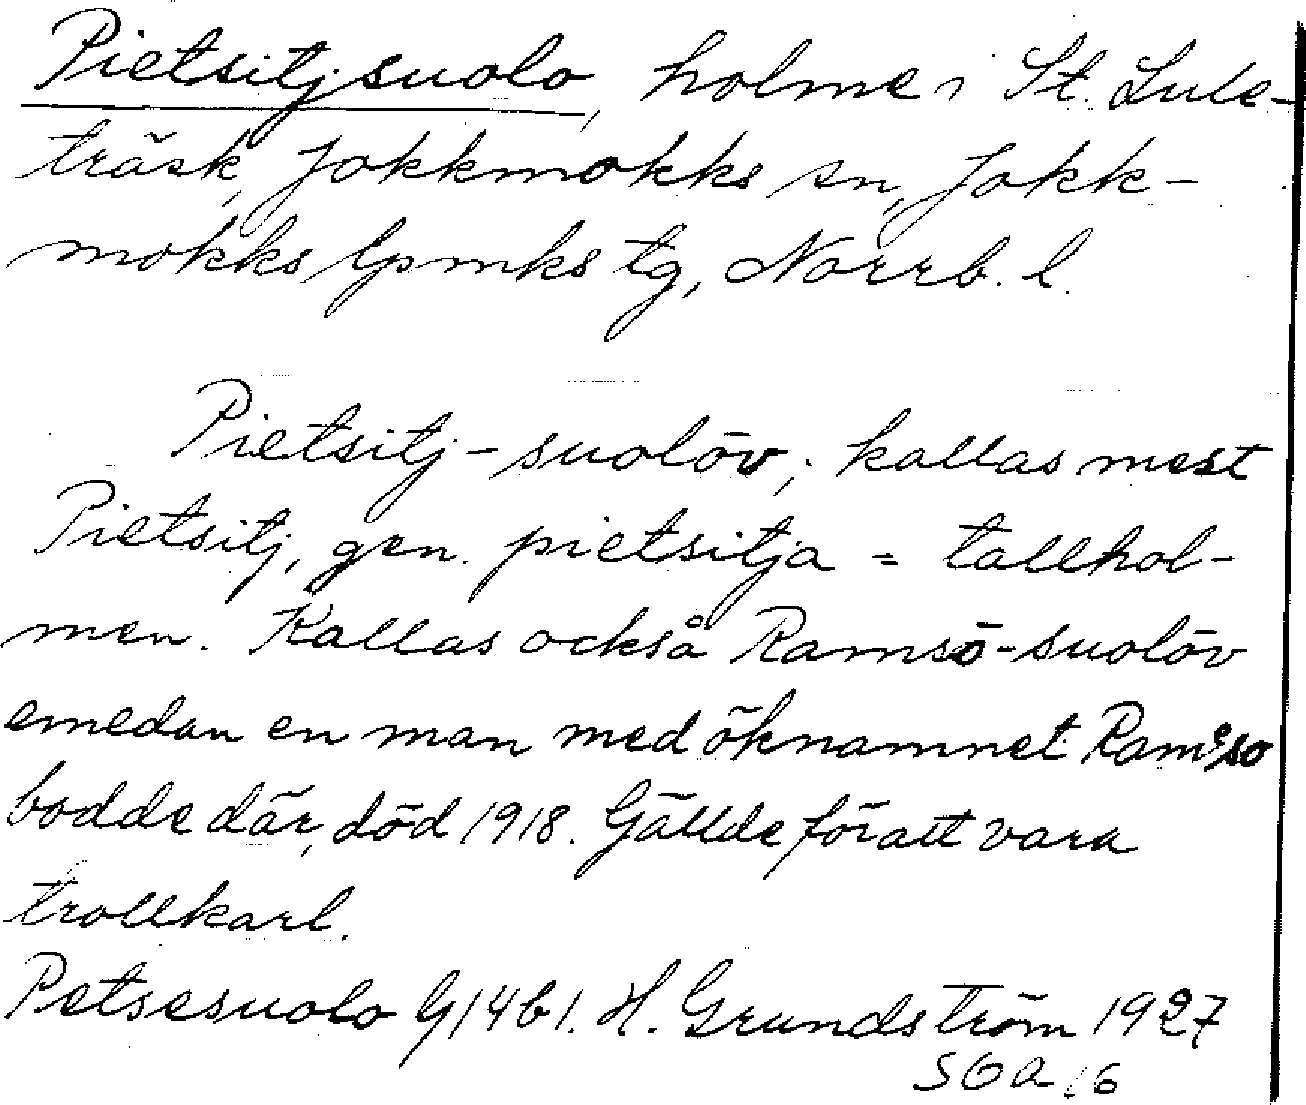 Pietsitjsuolo, holme i St. Lule-
träsk, Jokkmokks sn, Jokk-
mokks lpmks tg, Norrb. l.
Pietsitj-suolōv; kallas mest
Pietsitj, gen. pietsitja = tallhol-
men. Kallas också Ramsō-suolōv
emedan en man med öknamnet Ramso
bodde där, död 1918. Gällde för att vara
trollkarl.
Petsesuolo G14b1. H. Grundström 1927
SGA 16